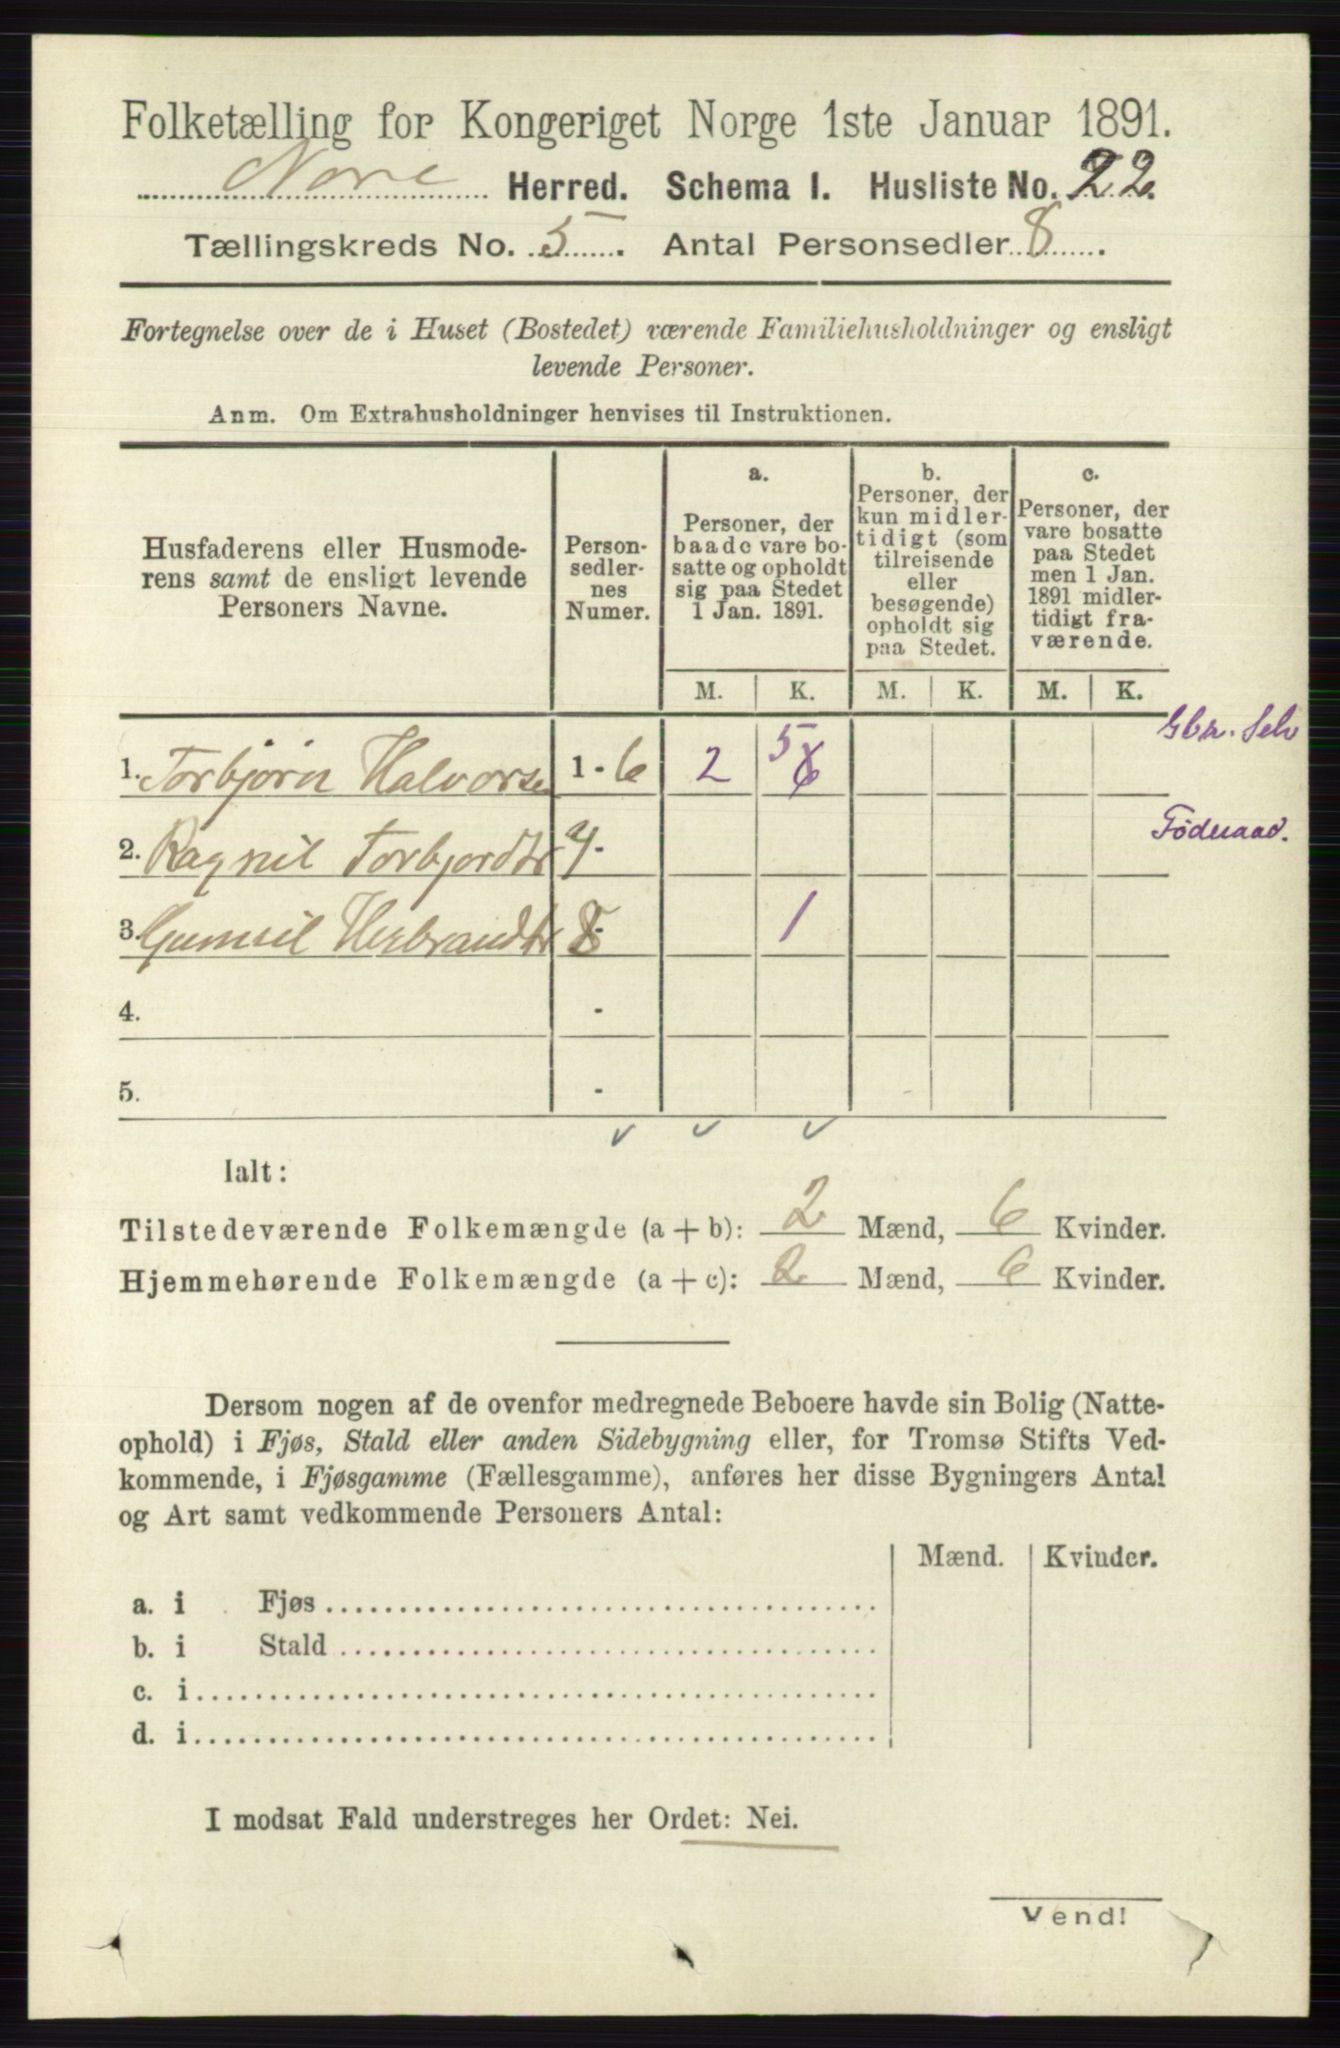 Folketælling for Kongeriget Norge 1ste Januar 1891.
Nore Herred. Schema I. Husliste No. 22.
Tællingskreds No. 5. Antal Personsedler 8.
Fortegnelse over de i Huset (Bostedet) værende Familiehusholdninger og ensligt
levende Personer.
Anm. Om Extrahusholdninger henvises til Instruktionen.
Husfaderens eller Husmode-
rens samt de ensligt levende
Personers Navne.
Person-
sedler-
nes
Numer.
a.
Personer, der
baade vare bo-
satte og opholdt
sig paa Stedet
1 Jan. 1891.
b.
Personer, der
kun midler-
tidigt (som
tilreisende
eller
besøgende)
opholdt sig
paa Stedet.
c.
Personer, der
vare bosatte
paa Stedet
men 1 Jan.
1891 midler-
tidigt fra-
værende.
M. K. M. K. M. K.
1. Torbjørn Halvorsen 1 - 6 2 5 6 Gbr. Selv
2. Ragnil Torbjordtr 7 - Føderaad.
3. Gunnil Herbrandtr 8 - 1
4. -
5. -
Ialt:
Tilstedeværende Folkemængde (a + b): 2 Mænd, 6 Kvinder.
Hjemmehørende Folkemængde (a + c): 2 Mænd, 6 Kvinder.
Dersom nogen af de ovenfor medregnede Beboere havde sin Bolig (Natte-
ophold) i Fjøs, Stald eller anden Sidebygning eller, for Tromsø Stifts Ved-
kommende, i Fjøsgamme (Fællesgamme), anføres her disse Bygningers Antal
og Art samt vedkommende Personers Antal:
Mænd. Kvinder.
a. i Fjøs
b. i Stald
c. i
d. i
I modsat Fald understreges her Ordet: Nei.
Vend!